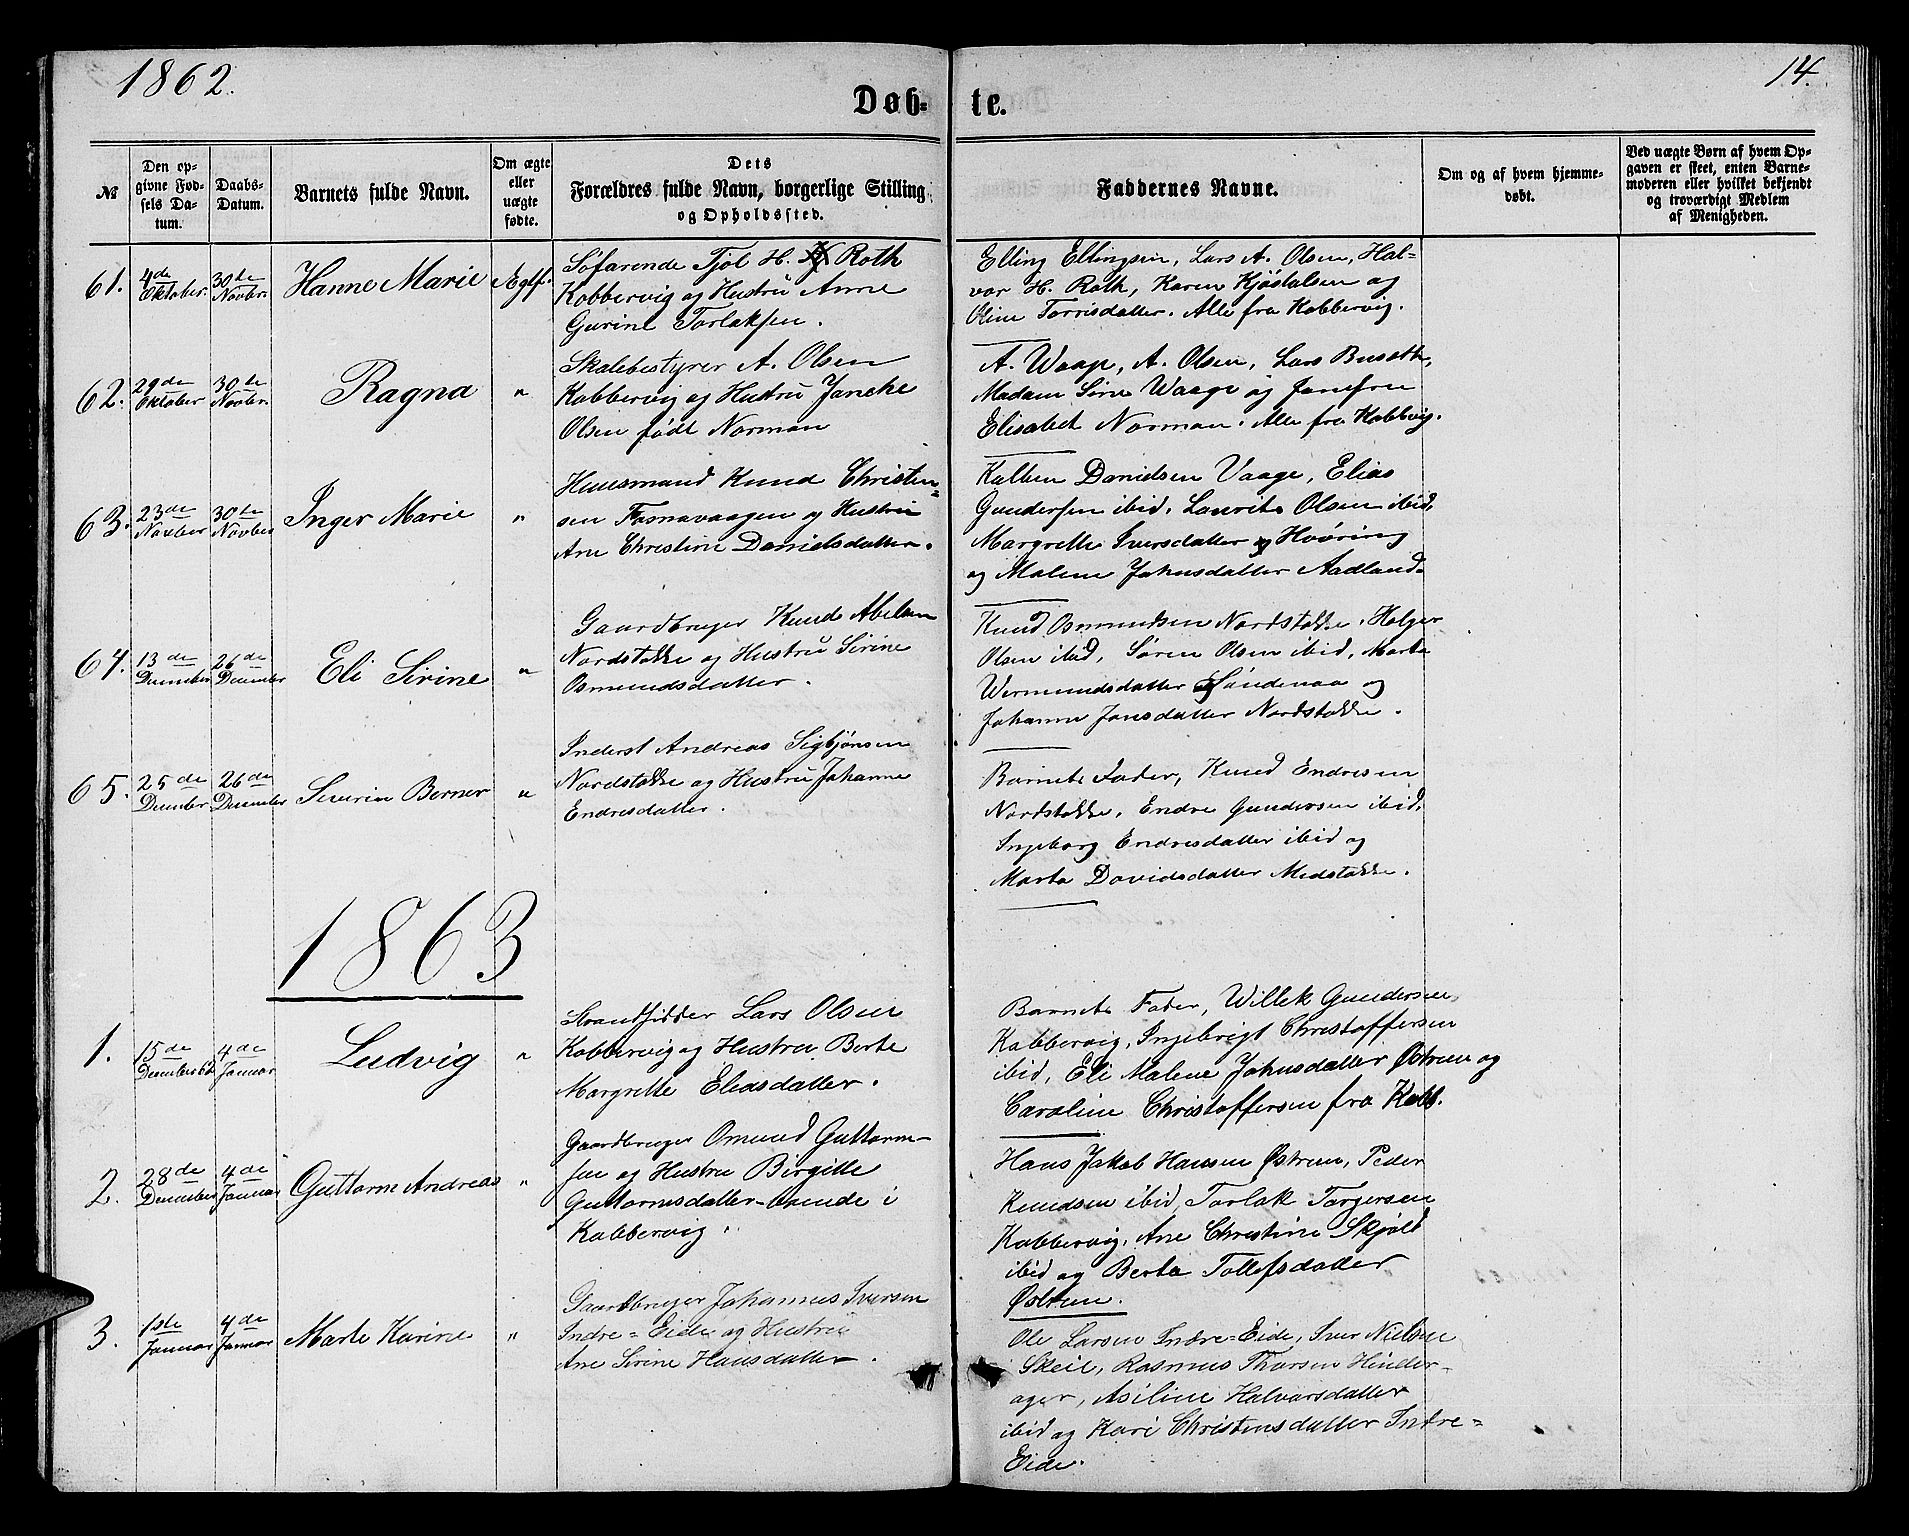 1862.
14.
Døb- te.
№
Den op-
givne Fød-
sels Da-
tum.
Daabs-
Datum.
Barnets fulde Navn.
Om ægte
eller
uægte
fødte.
Dets
Forældres fulde Navn, borgerlige Stilling
og Opholdssted.
Faddernes Navne.
Om og af hvem hjemme-
døbt.
Ved uægte Børn af hvem Op-
gaven er skeet, enten Barne-
moderen eller hvilket bekjendt
og troværdigt Medlem
af Menigheden.
61.
4de
Oktober.
30te
Novbr.
Hanne Marie
Søfarende Tjøl H. Roth
Kobbervig og Hustru Anne
Gurine Torlaksen.
Elling Ellingsen, Lars A. Olsen, Hal-
vor H. Roth, Karen Kjøstolsen og
Oline Torrisdatter. Alle fra Kobbervig.
62.
29de
Oktober
30te
Novbr.
Ragna
"
Skolebestyrer A. Olsen
Kobbervig og Hustru Jancke
Olsen født Norman
A. Waage, A. Olsen, Lars
Madam Sirne Waage og Jomfru
Elisabet Norman. Alle fra Kobbvig.
63.
23de
Novber
30te
Novber
Inger Marie
"
Huusmand Knud Christen-
sen Fosnavaagen og Hustru
Ane Christine Danielsdatter.
Danielsen Vaage, Elias
Gundersen ibid, Laurits Olsen ibid,
Margrethe Iversdatter Hvøring
og Malene Johnsdatter Aadland.
64.
13de
December
26de
December
Eli Sirine
"
Gaardbruger Knud Abelsen
Nordstokke og Hustru Sirine
Osmundsdatter.
Knud Osmundsen Nordstokke, Holger
Olsen ibid, Søren Olsen ibid, Marta
Wermundsdatter Søndenaa og
Johanne Jonsdatter Nordstokke.
65.
25de
December
26de
December
Severin Berner
"
Inderst Andreas Sigbjørnsen
Nordstokke og Hustru Johanne
Endresdatter.
Barnets Fader, Knud Endresen
Nordstokke, Endre Gundersen ibid,
Ingeborg Endresdatter ibid og
Marta Davidsdatter Medstokke.
1863
1.
15de
December 62
4de
Januar
Ludvig
"
Strandsidder Lars Olsen
Kobbervig og Hustru Berte
Margrethe Eliasdatter.
Barnets Fader, Willek Gundersen
Kobbervig, Ingebrigt Christoffersen
ibid, Eli Malene Johnsdatter Østrem og
Caroline Christoffersen fra Kobb.
2.
28de
December
4de
Januar
Guttorm Andreas
"
Gaardbruger Omund Guttorm-
sen og Hustru Birgitte
Guttormsdatter boende i
Kobbervig.
Hans Jakob Hansen Østrem, Peder
Knudsen ibid, Torlak Torgersen
Kobbervig, Ane Christine Skjølt
ibid og Berta Tollefsdatter
Østrem.
3.
1ste
Januar
4de
Januar
Marte Karine
"
Gaardbruger Johannes Iversen
Indre=Eide og Hustru
Ane Sirine Hansdatter.
Ole Larsen Indre=Eide, Iver Nielsen
Skeie, Rasmus Thorsen Hinder-
ager, Asiline Halvorsdatter
ibid og Kari Christensdatter Indre=
Eide.